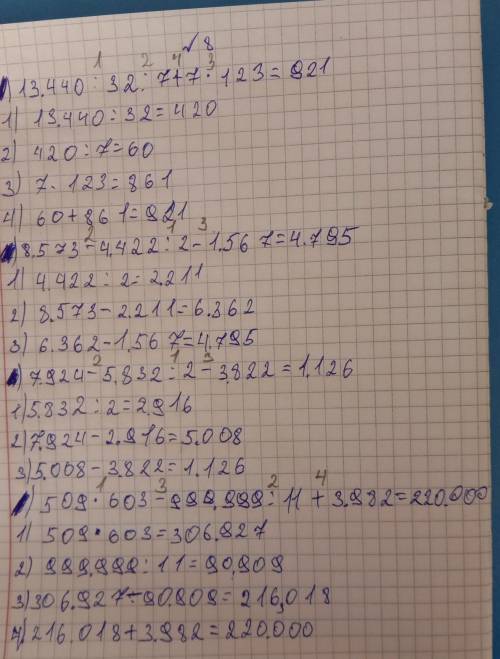 √8
) 13.440 : 32 : 7+7 · 123 = 921
1) 13.440 : 32 = 420
2) 420 : 7 = 60
3) 7 · 123 = 861
4) 60 + 861 = 921
) 8.573 - 4.422 : 2 - 1.567 = 4.795
1) 4.422 : 2 = 2.211
2) 8.573 - 2.211 = 6.362
3) 6.362 - 1.567 = 4.795
) 7.924 - 5.832 : 2 - 3.822 = 1.126
1) 5.832 : 2 = 2.916
2) 7.924 - 2.916 = 5.008
3) 5.008 - 3.822 = 1.126
) 509 · 603 - 999.999 : 11 + 3.982 = 220.000
1) 509 · 603 = 306.927
2) 999.999 : 11 = 90.909
3) 306.927 - 90.909 = 216.018
4) 216.018 + 3.982 = 220.000